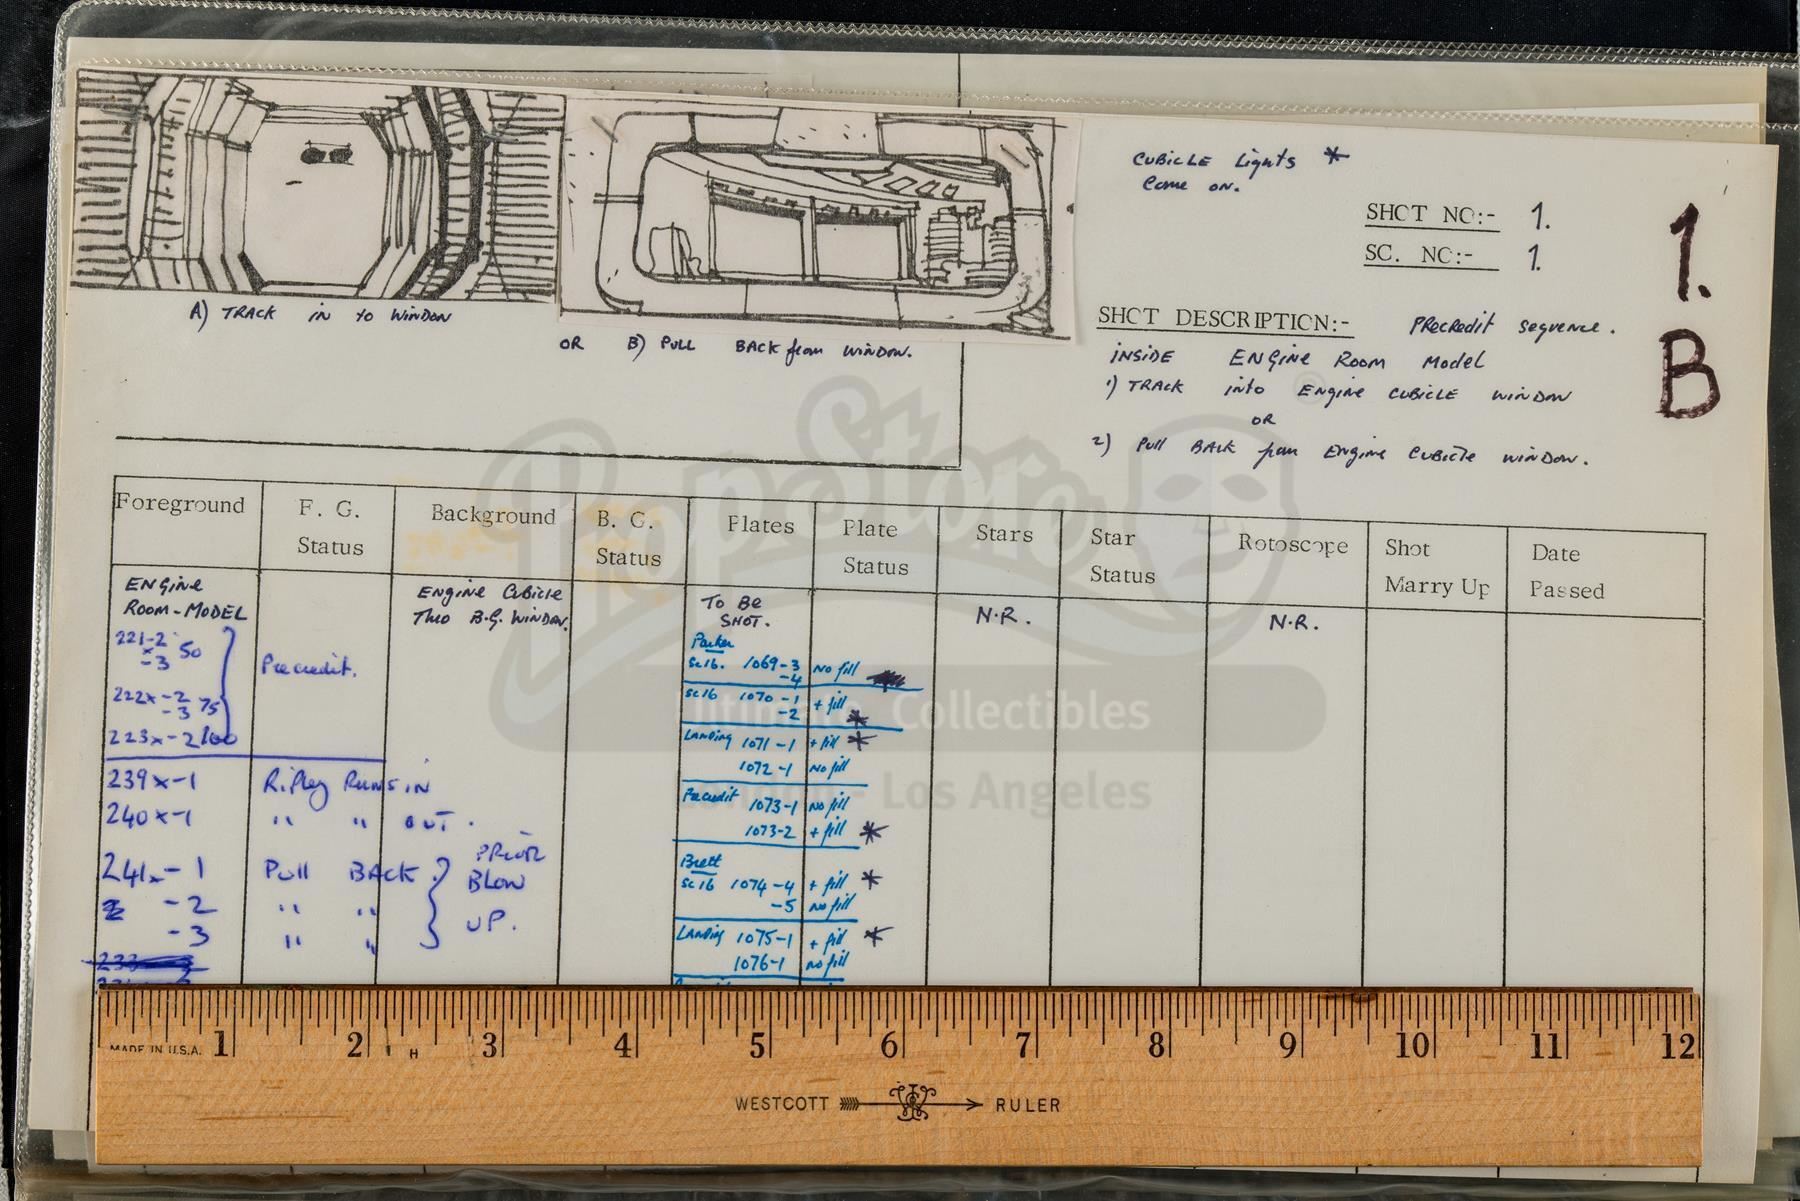 CUBICLE Lights *
Come on.
SHOT NO:- 1.
SC. NO:- 1.
1.
B
A) TRACK in to WINDOW
OR B) PULL BACK from WINDOW.
SHOT DESCRIPTION:- PRECREDIT SEQUENCE.
INSIDE ENGINE ROOM MODEL
1) TRACK into ENGINE CUBICLE WINDOW
OR
2) Pull BACK from ENGINE CUBICLE WINDOW.
Foreground F. G. Status Background B. G. Status Plates Plate Status Stars Star Status Rotoscope Shot Marry Up Date Passed
ENGINE ROOM-MODEL
ENGINE CUBICLE
THRO B.G. WINDOW.
TO BE SHOT.
N.R.
N.R.
221-2 x -3 50
222x-2 -3 75
223x-2 100
Precredit.
239x-1 Ripley RUNS IN
240x-1 " " OUT.
241x-1 Pull BACK
-2 " "
-3 " "
PRIOR
BLOW
UP.
Parker
Sc16. 1069-3 No fill
-4
Sc16 1070-1 + fill
-2 *
LANDING 1071-1 + fill *
1072-1 No fill
Precredit 1073-1 No fill
1073-2 + fill *
Brett
Sc16 1074-4 + fill *
-5 No fill
LANDING 1075-1 + fill *
1076-1 No fill
PropStore
®
Ultimate Collectibles
London - Los Angeles
1 2 3 4 5 6 7 8 9 10 11 12
MADE IN U.S.A.
H
WESTCOTT RULER